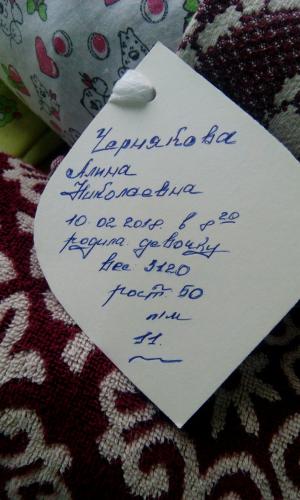 Чернякова
Алина
Николаевна
10.02.2018. в 8 20
родила девочку
вес 3120
рост 50
п/м
11.